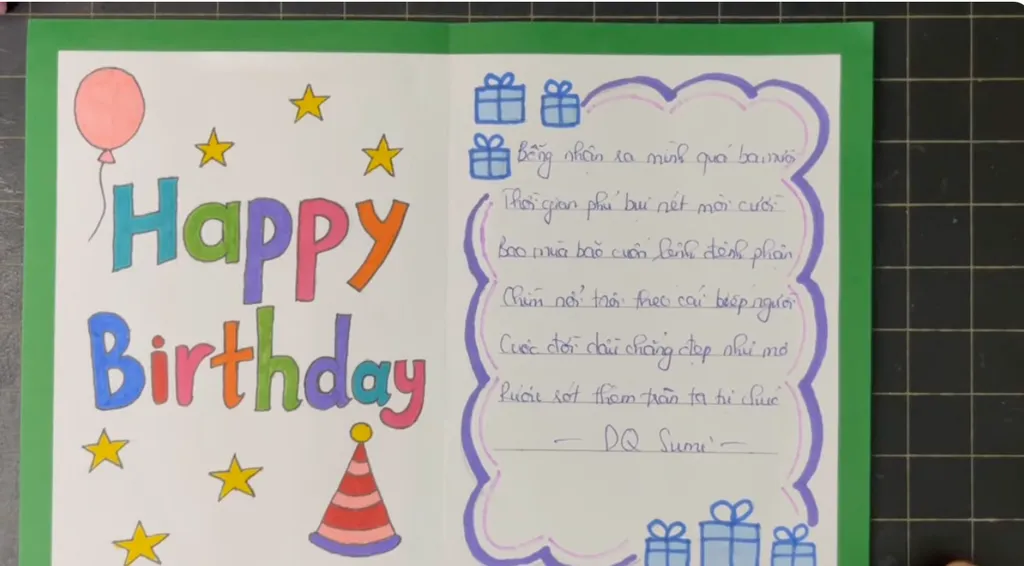 Happy
Birthday
Bỗng nhận ra mình quá ba mươi
Thời gian phủ bụi nét môi cười
Bao mùa bão cuốn lênh đênh phận
Chìm nổi trôi theo cái kiếp người
Cuộc đời dẫu chẳng đẹp như mơ
Rượu rót thêm tràn ta tự chúc
— DQ Sumi —